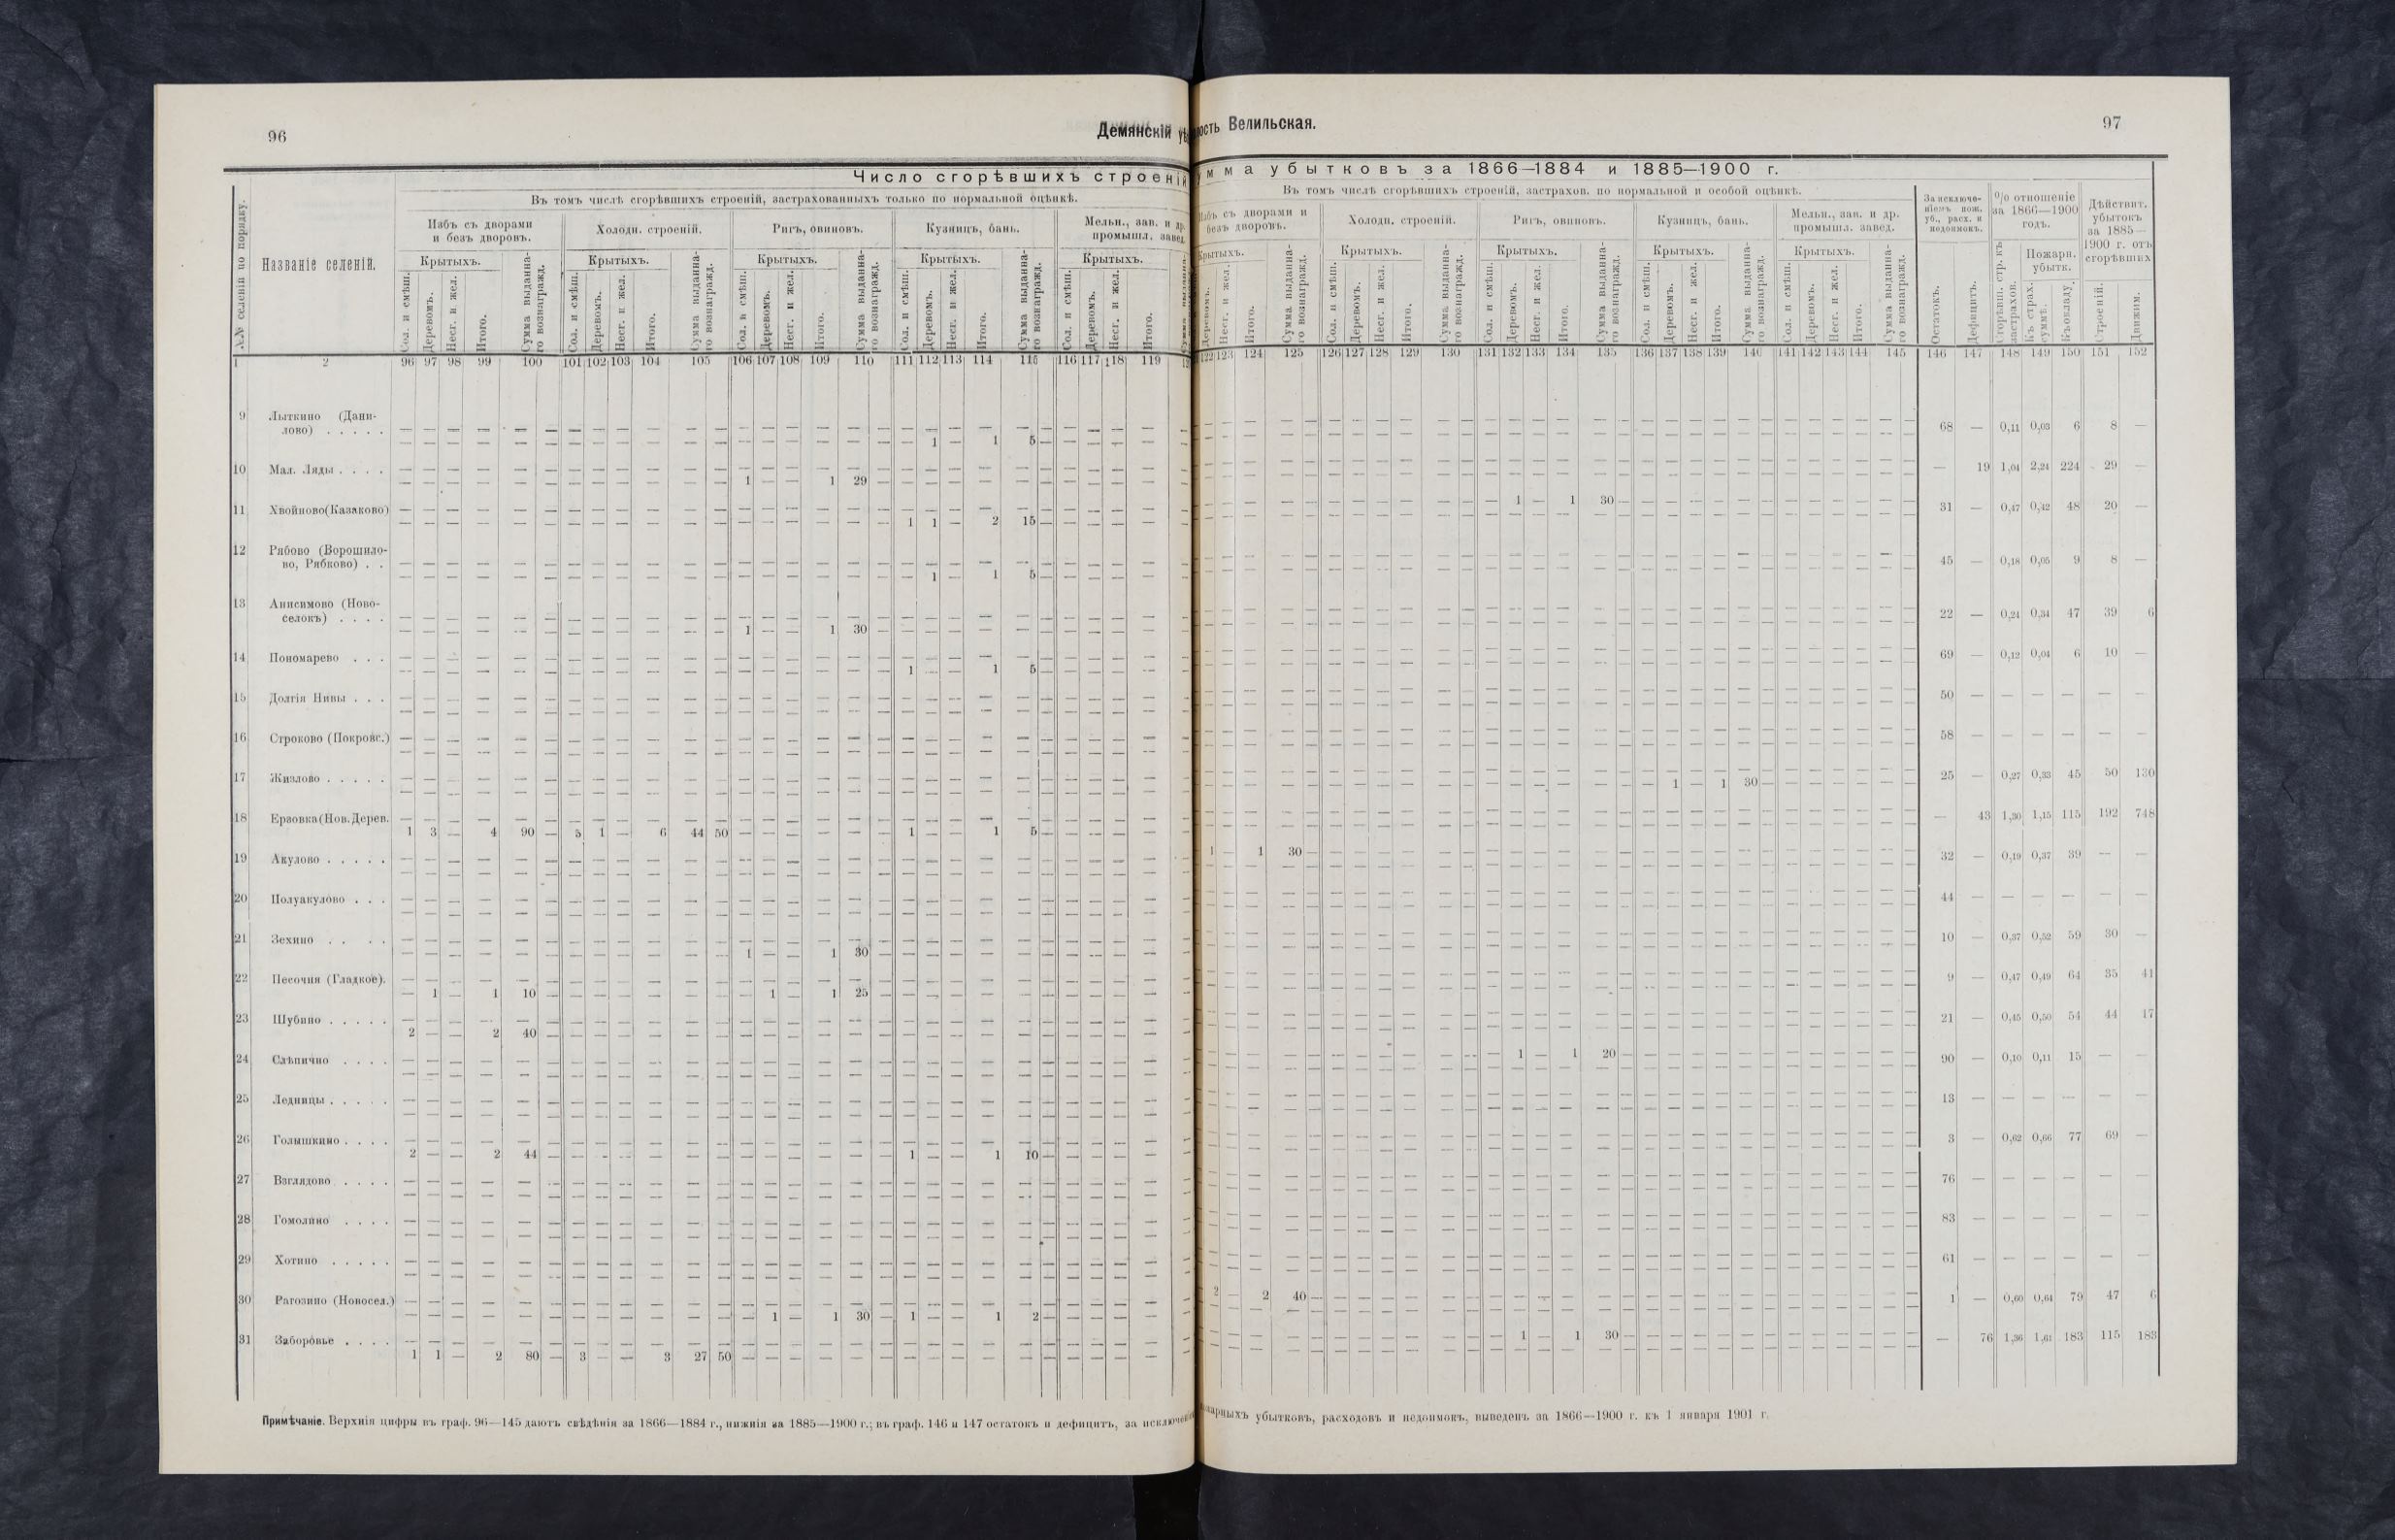 96
Демянскій уѣ
ость Велильская.
97
Число сгорѣвшихъ строеній
мма убытковъ за 1866—1884 и 1885—1900 г.
№№ селеній по порядку.
Названіе селеній.
Въ томъ числѣ сгорѣвшихъ строеній, застрахованныхъ только по нормальной оцѣнкѣ.
Избъ съ дворами и безъ дворовъ.
Холодн. строеній.
Ригъ, овиновъ.
Кузницъ, бань.
Мельн., зав. и др. промышл. завед.
Крытыхъ. Крытыхъ. Крытыхъ. Крытыхъ. Крытыхъ.
Сол. и смѣш. Деревомъ. Несг. и жел. Итого. Сумма выданнаго вознагражд.
Сол. и смѣш. Деревомъ. Несг. и жел. Итого. Сумма выданнаго вознагражд.
Сол. и смѣш. Деревомъ. Несг. и жел. Итого. Сумма выданнаго вознагражд.
Сол. и смѣш. Деревомъ. Несг. и жел. Итого. Сумма выданнаго вознагражд.
Сол. и смѣш. Деревомъ. Несг. и жел. Итого.
Въ томъ числѣ сгорѣвшихъ строеній, застрахов. по нормальной и особой оцѣнкѣ.
Избъ съ дворами и безъ дворовъ.
Холодн. строеній.
Ригъ, овиновъ.
Кузницъ, бань.
Мельн., зав. и др. промышл. завед.
Крытыхъ. Крытыхъ. Крытыхъ. Крытыхъ. Крытыхъ.
Деревомъ. Несг. и жел. Итого. Сумма выданнаго вознагражд.
Сол. и смѣш. Деревомъ. Несг. и жел. Итого. Сумма выданнаго вознагражд.
Сол. и смѣш. Деревомъ. Несг. и жел. Итого. Сумма выданнаго вознагражд.
Сол. и смѣш. Деревомъ. Несг. и жел. Итого. Сумма выданнаго вознагражд.
Сол. и смѣш. Деревомъ. Несг. и жел. Итого. Сумма выданнаго вознагражд.
За исключеніемъ пож. уб., расх. и недоимокъ.
Остатокъ. Дефицитъ.
% отношеніе за 1866—1900 годъ.
Сгорѣвш. стр. къ застрахов.
Пожарн. убытк.
Къ страх. суммѣ. Къ окладу.
Дѣйствит. убытокъ за 1885—1900 г. отъ сгорѣвшихъ
Строеній. Движим.
1 2 96 97 98 99 100 101 102 103 104 105 106 107 108 109 110 111 112 113 114 115 116 117 118 119
122 123 124 125 126 127 128 129 130 131 132 133 134 135 136 137 138 139 140 141 142 143 144 145 146 147 148 149 150 151 152
9 Лыткино (Данилово) . . . . . 1 — 1 5 — 68 — 0,11 0,03 6 8 —
10 Мал. Ляды . . . . 1 — — 1 29 — 19 1,04 2,24 224 29 —
11 Хвойново(Казаково) 1 1 — 2 15 — 1 — 1 30 — 31 — 0,47 0,42 48 20 —
12 Рябово (Ворошилово, Рябково) . . 1 — 1 5 — 45 — 0,18 0,05 9 8 —
13 Анисимово (Новоселокъ) . . . . 1 — — 1 30 — 22 — 0,24 0,34 47 39 6
14 Пономарево . . . 1 — — 1 5 — 69 — 0,12 0,04 6 10 —
15 Долгія Нивы . . . 50 — — — — — —
16 Строково (Покровс.) 58 — — — — — —
17 Жизлово . . . . . 1 — 1 30 — 25 — 0,27 0,33 45 50 130
18 Ерзовка(Нов.Дерев. 1 3 — 4 90 — 5 1 — 6 44 50 1 — — 1 5 — 43 1,30 1,15 115 192 748
19 Акулово . . . . . 1 — 1 30 — 32 — 0,19 0,37 39 — —
20 Полуакулово . . . 44 — — — — — —
21 Зехино . . . . 1 — — 1 30 — 10 — 0,37 0,52 59 30 —
22 Песочня (Гладкое). — 1 — 1 10 — 1 — 1 25 — 9 — 0,47 0,49 64 35 41
23 Шубино . . . . . 2 — — 2 40 — 21 — 0,45 0,50 54 44 17
24 Слѣпично . . . . 1 — 1 20 — 90 — 0,10 0,11 15 — —
25 Ледницы . . . . . 13 — — — — — —
26 Голышкино . . . . 2 — — 2 44 — 1 — — 1 10 — 3 — 0,62 0,66 77 69 —
27 Взглядово . . . . 76 — — — — — —
28 Гомолино . . . . 83 — — — — — —
29 Хотино . . . . . 61 — — — — — —
30 Рагозино (Новосел.) — 1 — 1 30 — 1 — — 1 2 — 2 — 2 40 — 1 — 0,60 0,64 79 47 6
31 Заборовье . . . . 1 1 — 2 80 — 3 — — 3 27 50 — 1 — 1 30 — 76 1,36 1,61 183 115 183
Примѣчаніе. Верхнія цифры въ граф. 96—145 даютъ свѣдѣнія за 1866—1884 г., нижнія за 1885—1900 г.; въ граф. 146 и 147 остатокъ и дефицитъ, за исключені
арныхъ убытковъ, расходовъ и недоимокъ, выведенъ за 1866—1900 г. къ 1 января 1901 г.